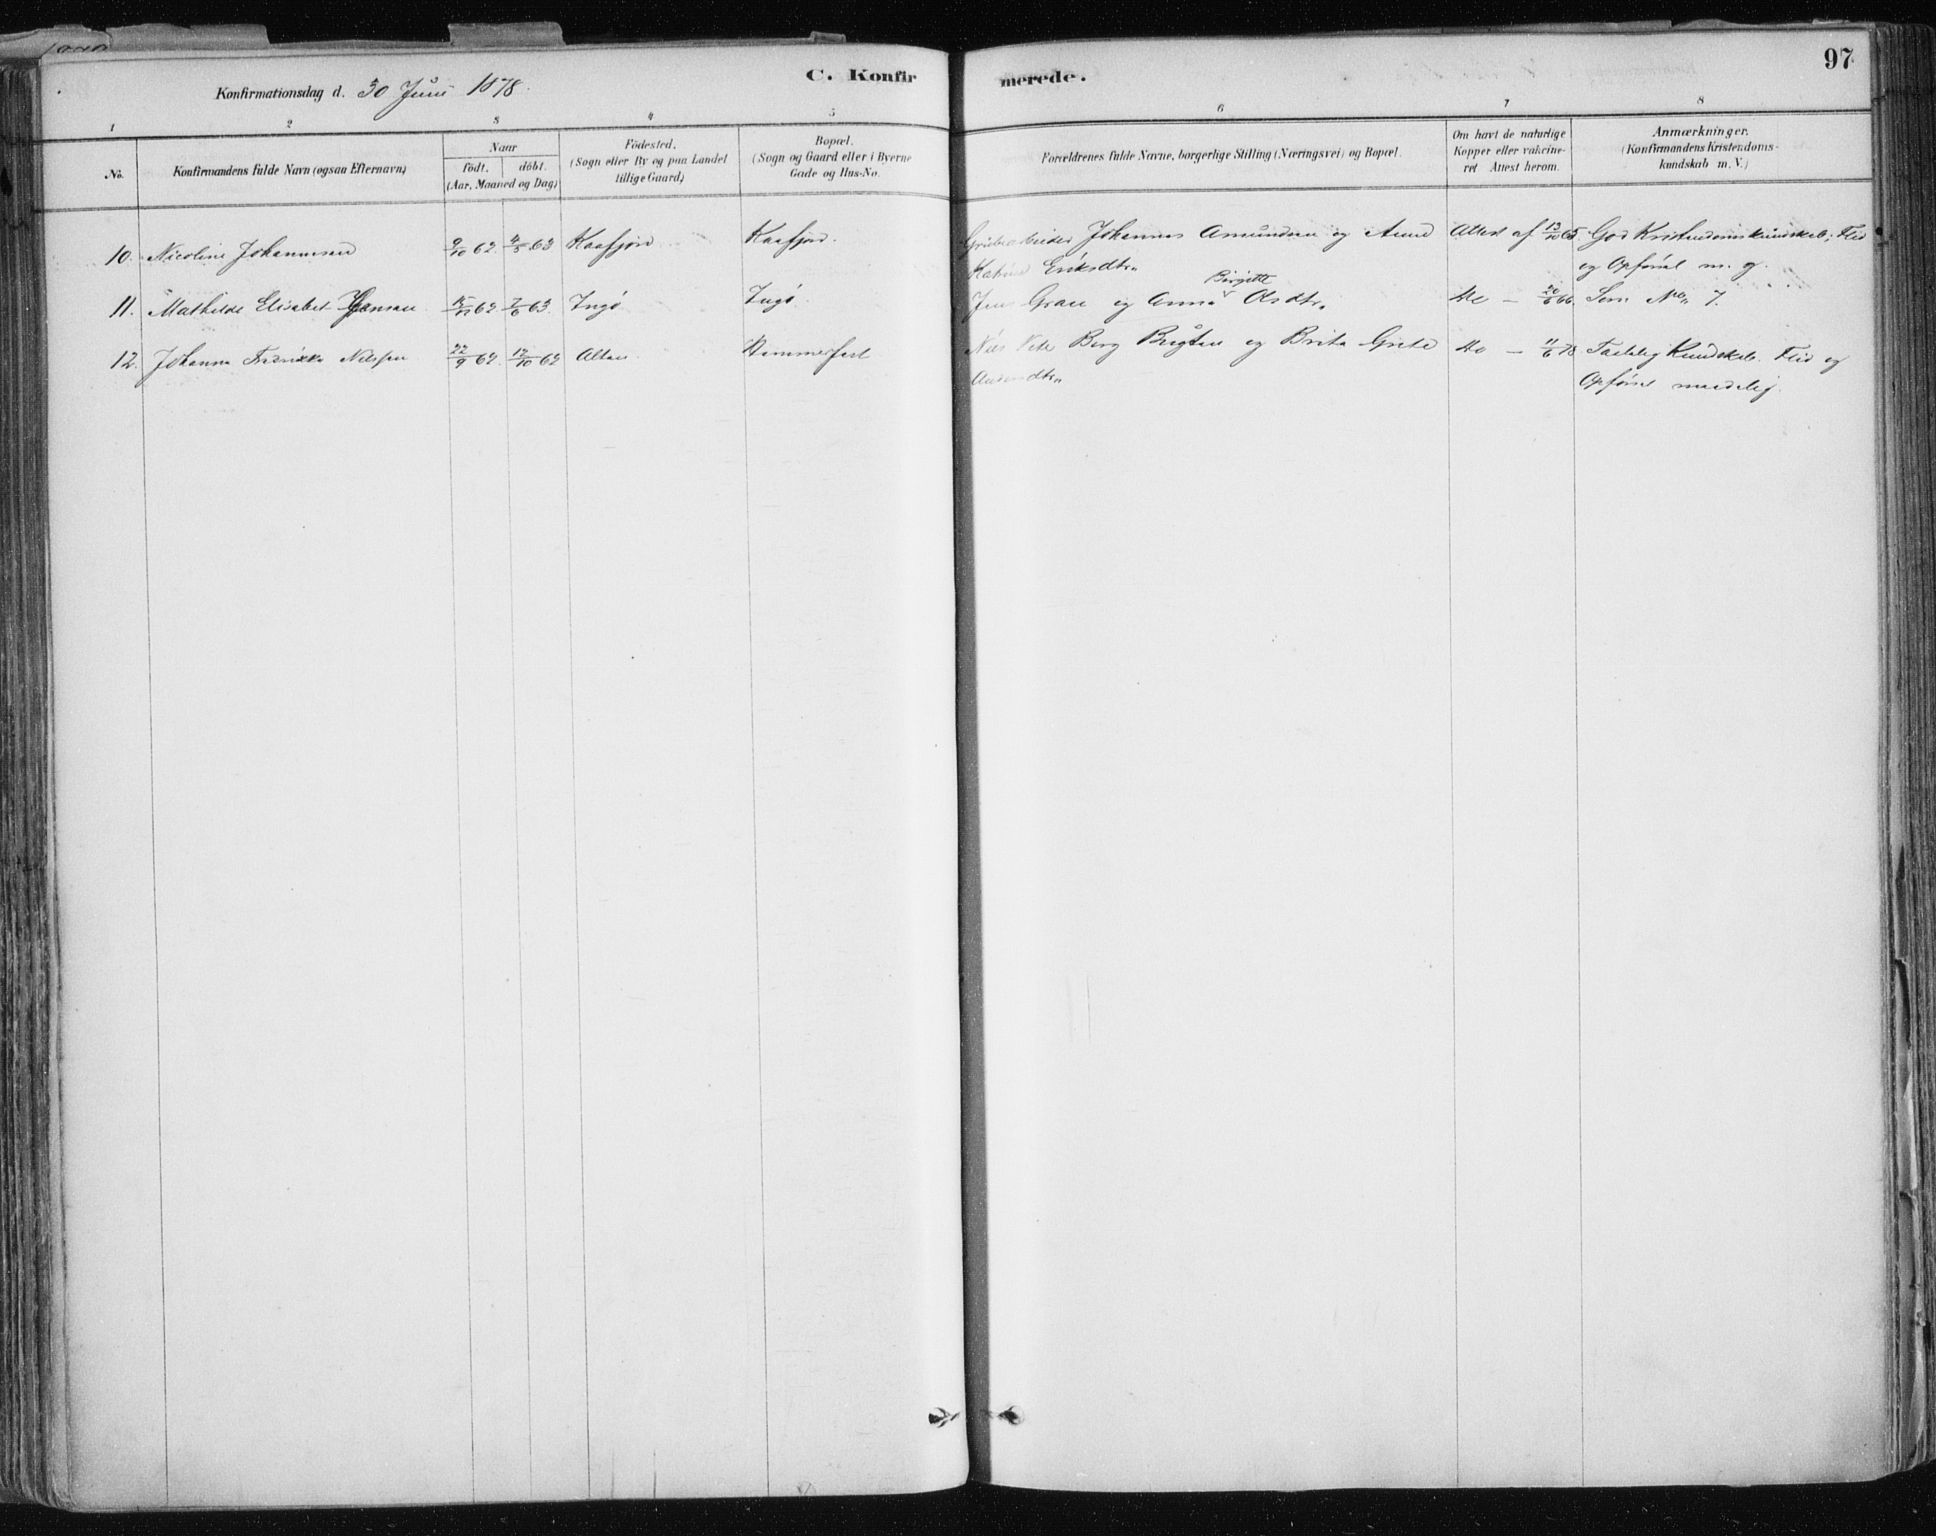 97
C. Konfir merede.
Konfirmationsdag d. 30 Juni 1878.
1 2 3 4 5 6 7 8
No.
Konfirmandens fulde Navn (ogsaa Efternavn)
Naar
födt. döbt.
(Aar, Maaned og Dag)
Födested.
(Sogn eller By og paa Landet
tillige Gaard)
Bopæl.
(Sogn og Gaard eller i Byerne
Gade og Hus-No.
Forældrenes fulde Navne, borgerlige Stilling (Næringsvei) og Bopæl.
Om havt de naturlige
Kopper eller vakcine-
ret Attest herom.
Anmærkninger.
(Konfirmandens Kristendoms-
kundskab m. V.)
10. Nicoline Johannesen 9/10 62. 4/5 63 Kaafjord Kaafjord. Grubearbeider Johannes Amundsen og Anne Attest af 13/10 65. God Kristendomskundskab; Flid
Katrine Eriksdtr. og Opførsel m. g.
Birgitte
11. Mathilde Elisabet Jensen 15/11 62 7/6 63. Ingø Ingø. Jens Grau og Anna Olsdtr. do — 20/6 66 Som No 7.
12. Johanna Fredrikke Nilsen 22/9 62. 12/10 62 Alten Hammerfest Nils Berg og Brita Grete do — 11/6 78 Taalelig Kundskab. Flid og
Opførsel maadelig.